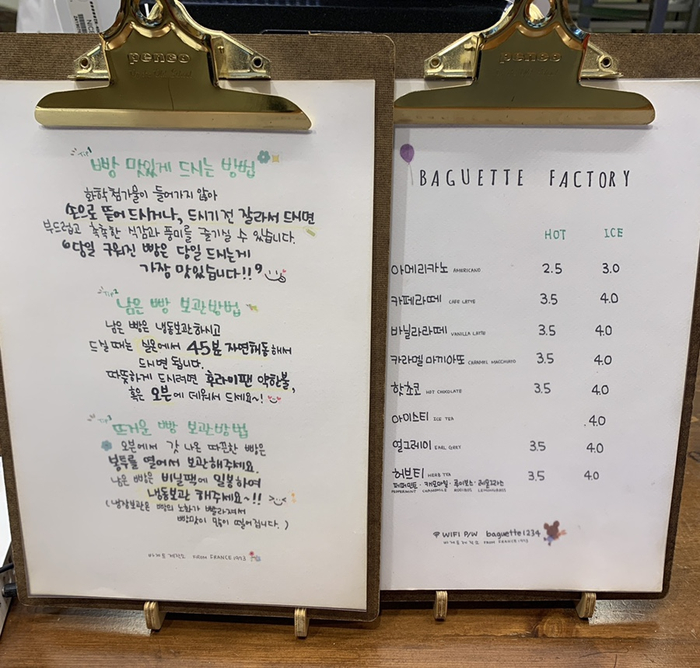 penco
빵 맛있게 드시는 방법
화학첨가물이 들어가지 않아
손으로 뜯어드시거나, 드시기전 잘라서 드시면
부드럽고 촉촉한 식감과 풍미를 즐기실 수 있습니다.
"당일 구워진 빵은 당일 드시는게
가장 맛있습니다!!"
남은 빵 보관방법
남은 빵은 냉동보관하시고
드실때는 실온에서 45분 자연해동해서
드시면 됩니다.
따뜻하게 드시려면 후라이팬 약한불,
혹은 오븐에 데워서 드세요~!
뜨거운 빵 보관방법
오븐에서 갓 나온 따끈한 빵은
봉투를 열어서 보관해주세요.
남은 빵은 비닐팩에 밀봉하여
냉동보관 해주세요~!!
(냉장보관은 빵의 노화가 빨라져서
빵맛이 많이 떨어집니다.)
FROM FRANCE
penco
BAGUETTE FACTORY
HOT ICE
아메리카노 AMERICANO 2.5 3.0
카페라떼 CAFE LATTE 3.5 4.0
바닐라라떼 VANILLA LATTE 3.5 4.0
카라멜 마키아또 CARAMEL MACCHIATO 3.5 4.0
핫초코 HOT CHOCOLATE 3.5 4.0
아이스티 ICE TEA 4.0
얼그레이 EARL GREY 3.5 4.0
허브티 HERB TEA 3.5 4.0
페퍼민트 · 캐모마일 · 루이보스 · 레몬그라스
PEPPERMINT CHAMOMILE ROOIBOS LEMONGRASS
WIFI P/W baguette1234
FROM FRANCE